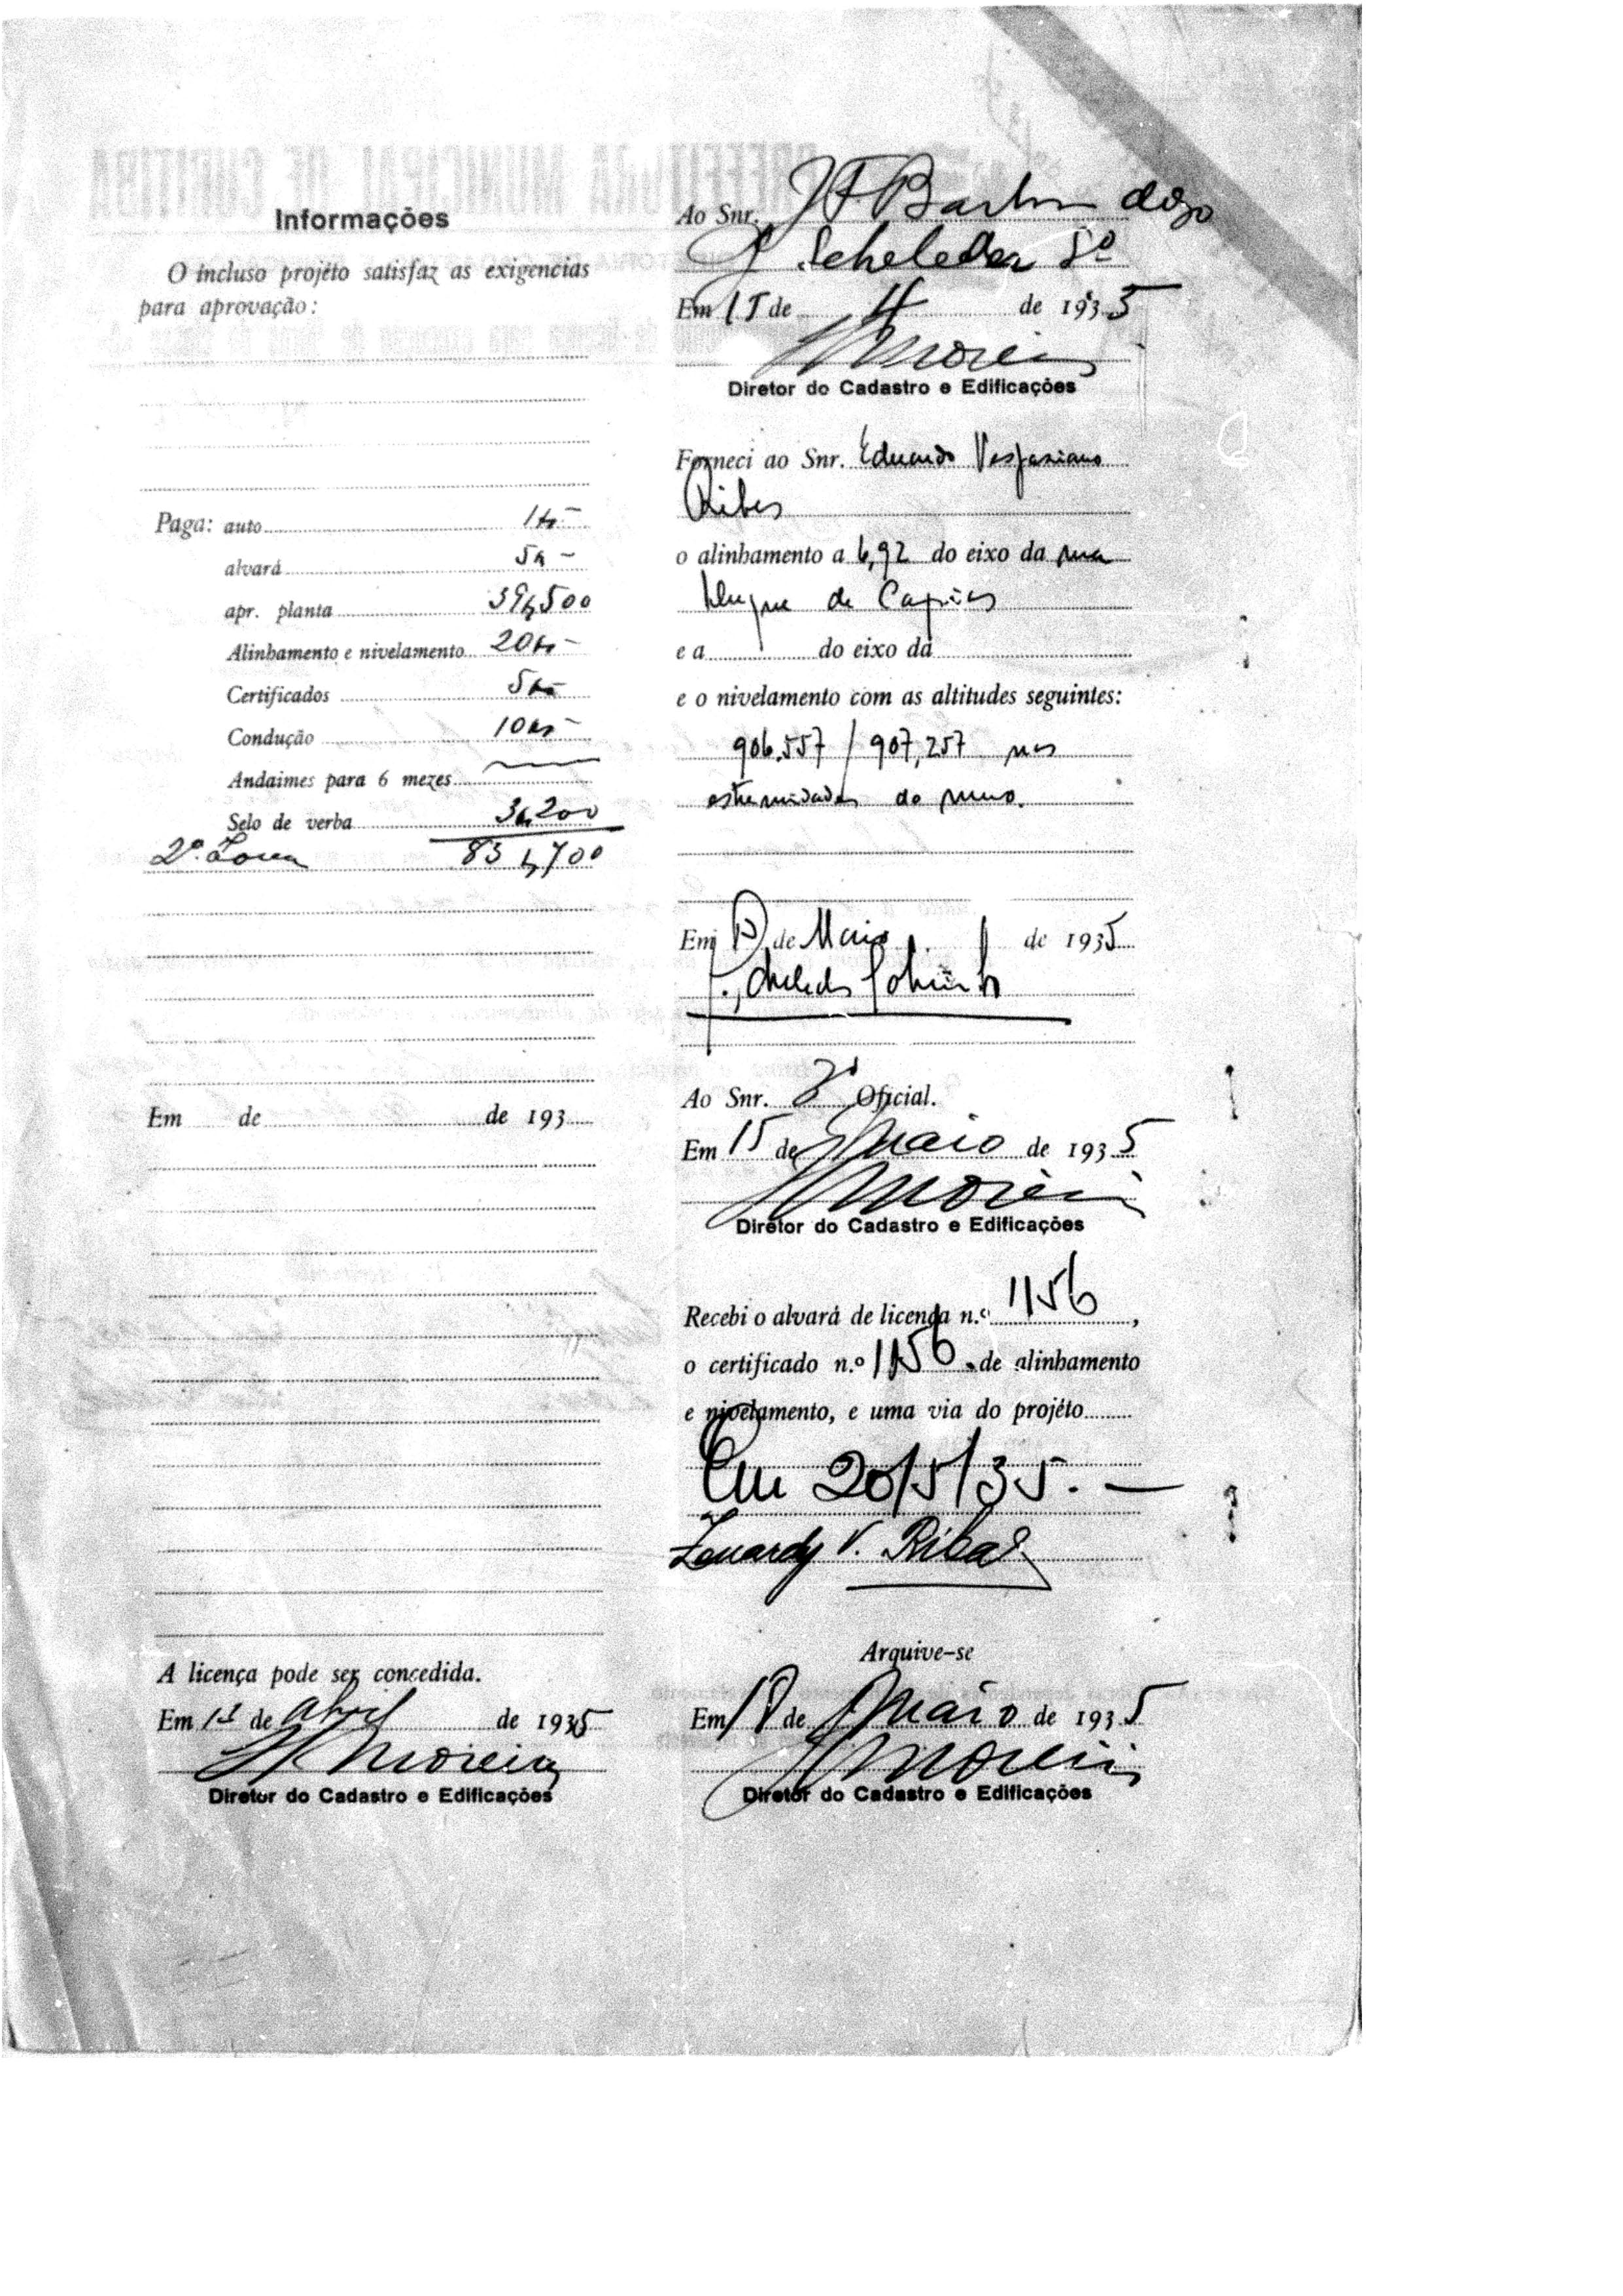 PREFEITURA MUNICIPAL DE CURITIBA
Informações
O incluso projéto satisfaz as exigencias
para aprovação:
Paga: auto 1$-
alvará 5$-
apr. planta 39$500
Alinhamento e nivelamento 20$-
Certificados 5$-
Condução 10$-
Andaimes para 6 mezes
Selo de verba 3$200
2ª Zona 83$700
Em de de 193
A licença pode ser concedida.
Em de abril de 1935
Moreira
Diretor do Cadastro e Edificações
Ao Snr.
Scheleder
Em 15 de 4 de 1935
Moreira
Diretor do Cadastro e Edificações
Forneci ao Snr. Eduardo Vespasiano
Ribas
o alinhamento a 6,92 do eixo da rua
Duque de Caxias
e a do eixo da
e o nivelamento com as altitudes seguintes:
906.557 / 907,257 nas
estremidades do muro.
Em de Maio de 1935
Ao Snr. Oficial.
Em 15 de maio de 1935
Moreira
Diretor do Cadastro e Edificações
Recebi o alvará de licença n.º 1156,
o certificado n.º 1156 de alinhamento
e nivelamento, e uma via do projéto
Em 20/5/35. —
V. Ribas
Arquive-se
Em 18 de maio de 1935
Moreira
Diretor do Cadastro e Edificações